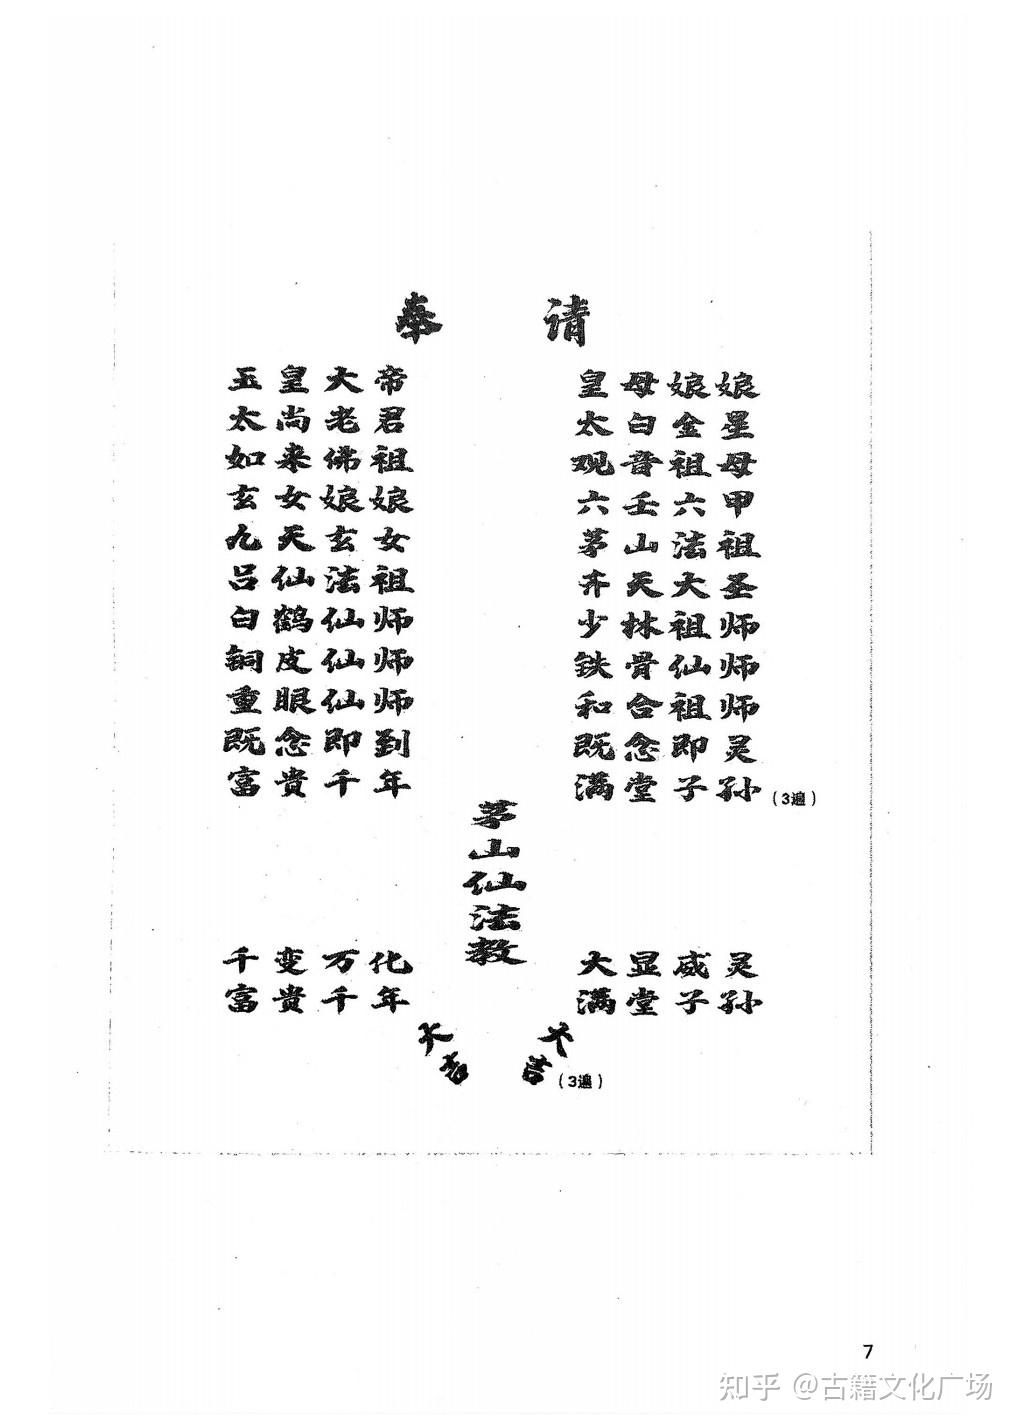 奉 请
玉皇大帝 皇母娘娘
太尚老君 太白金星
如来佛祖 观音祖母
玄女娘娘 六壬六甲
九天玄女 茅山法祖
吕仙法祖 齐天大圣
白鹤仙师 少林祖师
铜皮仙师 铁骨仙师
重眼仙师 和合祖师
既念即到 既念即灵
富贵千年 满堂子孙 (3遍)
茅山仙法教
千变万化 大显威灵
富贵千年 满堂子孙
大吉 大吉 (3遍)
7
知乎 @古籍文化广场